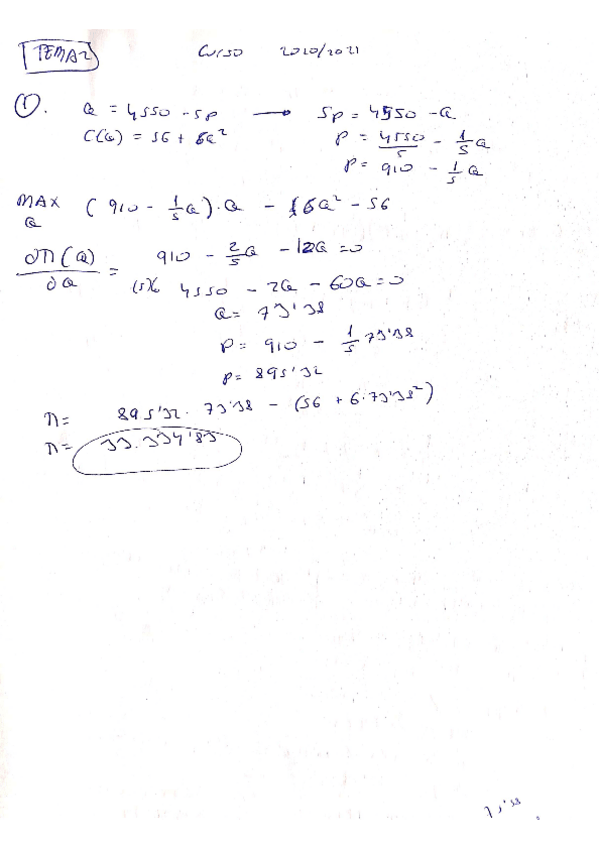 TEMA2 Curso 2020/2021
①. Q = 4550 - 5p → 5p = 4550 - Q
C(Q) = 56 + 6Q² p = 4550/5 - 1/5 Q
p = 910 - 1/5 Q
MAX Q (910 - 1/5 Q)·Q - 6Q² - 56
∂π(Q)/∂Q = 910 - 2/5 Q - 12Q = 0
4550 - 2Q - 60Q = 0
Q = 73'38
p = 910 - 1/5 73'38
p = 895'32
π = 895'32 · 73'38 - (56 + 6·73'38²)
π = 33.334'83